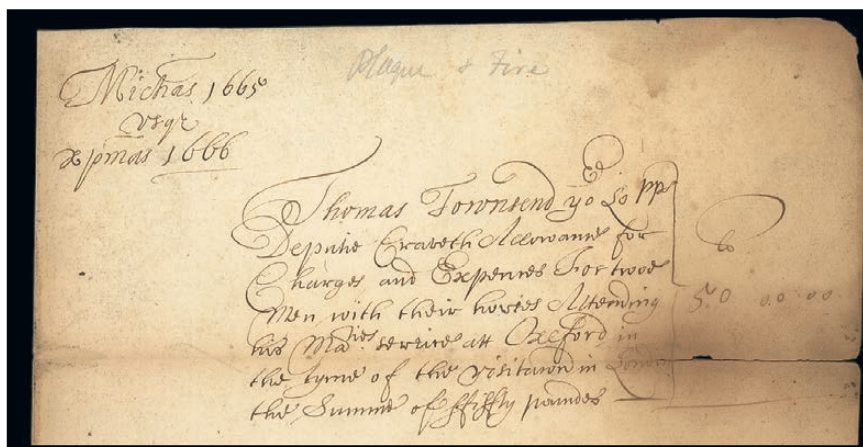 Plague & Fire
Michas 1665
usqr
xpmas 1666
Thomas Townsend yor Lopps
Deputie Craveth Allowanne for
Charges and Expences For twoe
Men with their horses Attending
his Maties service att Oxford in
the tyme of the visitacon in London
the Summe of ffiffty poundes
li
50 00 00